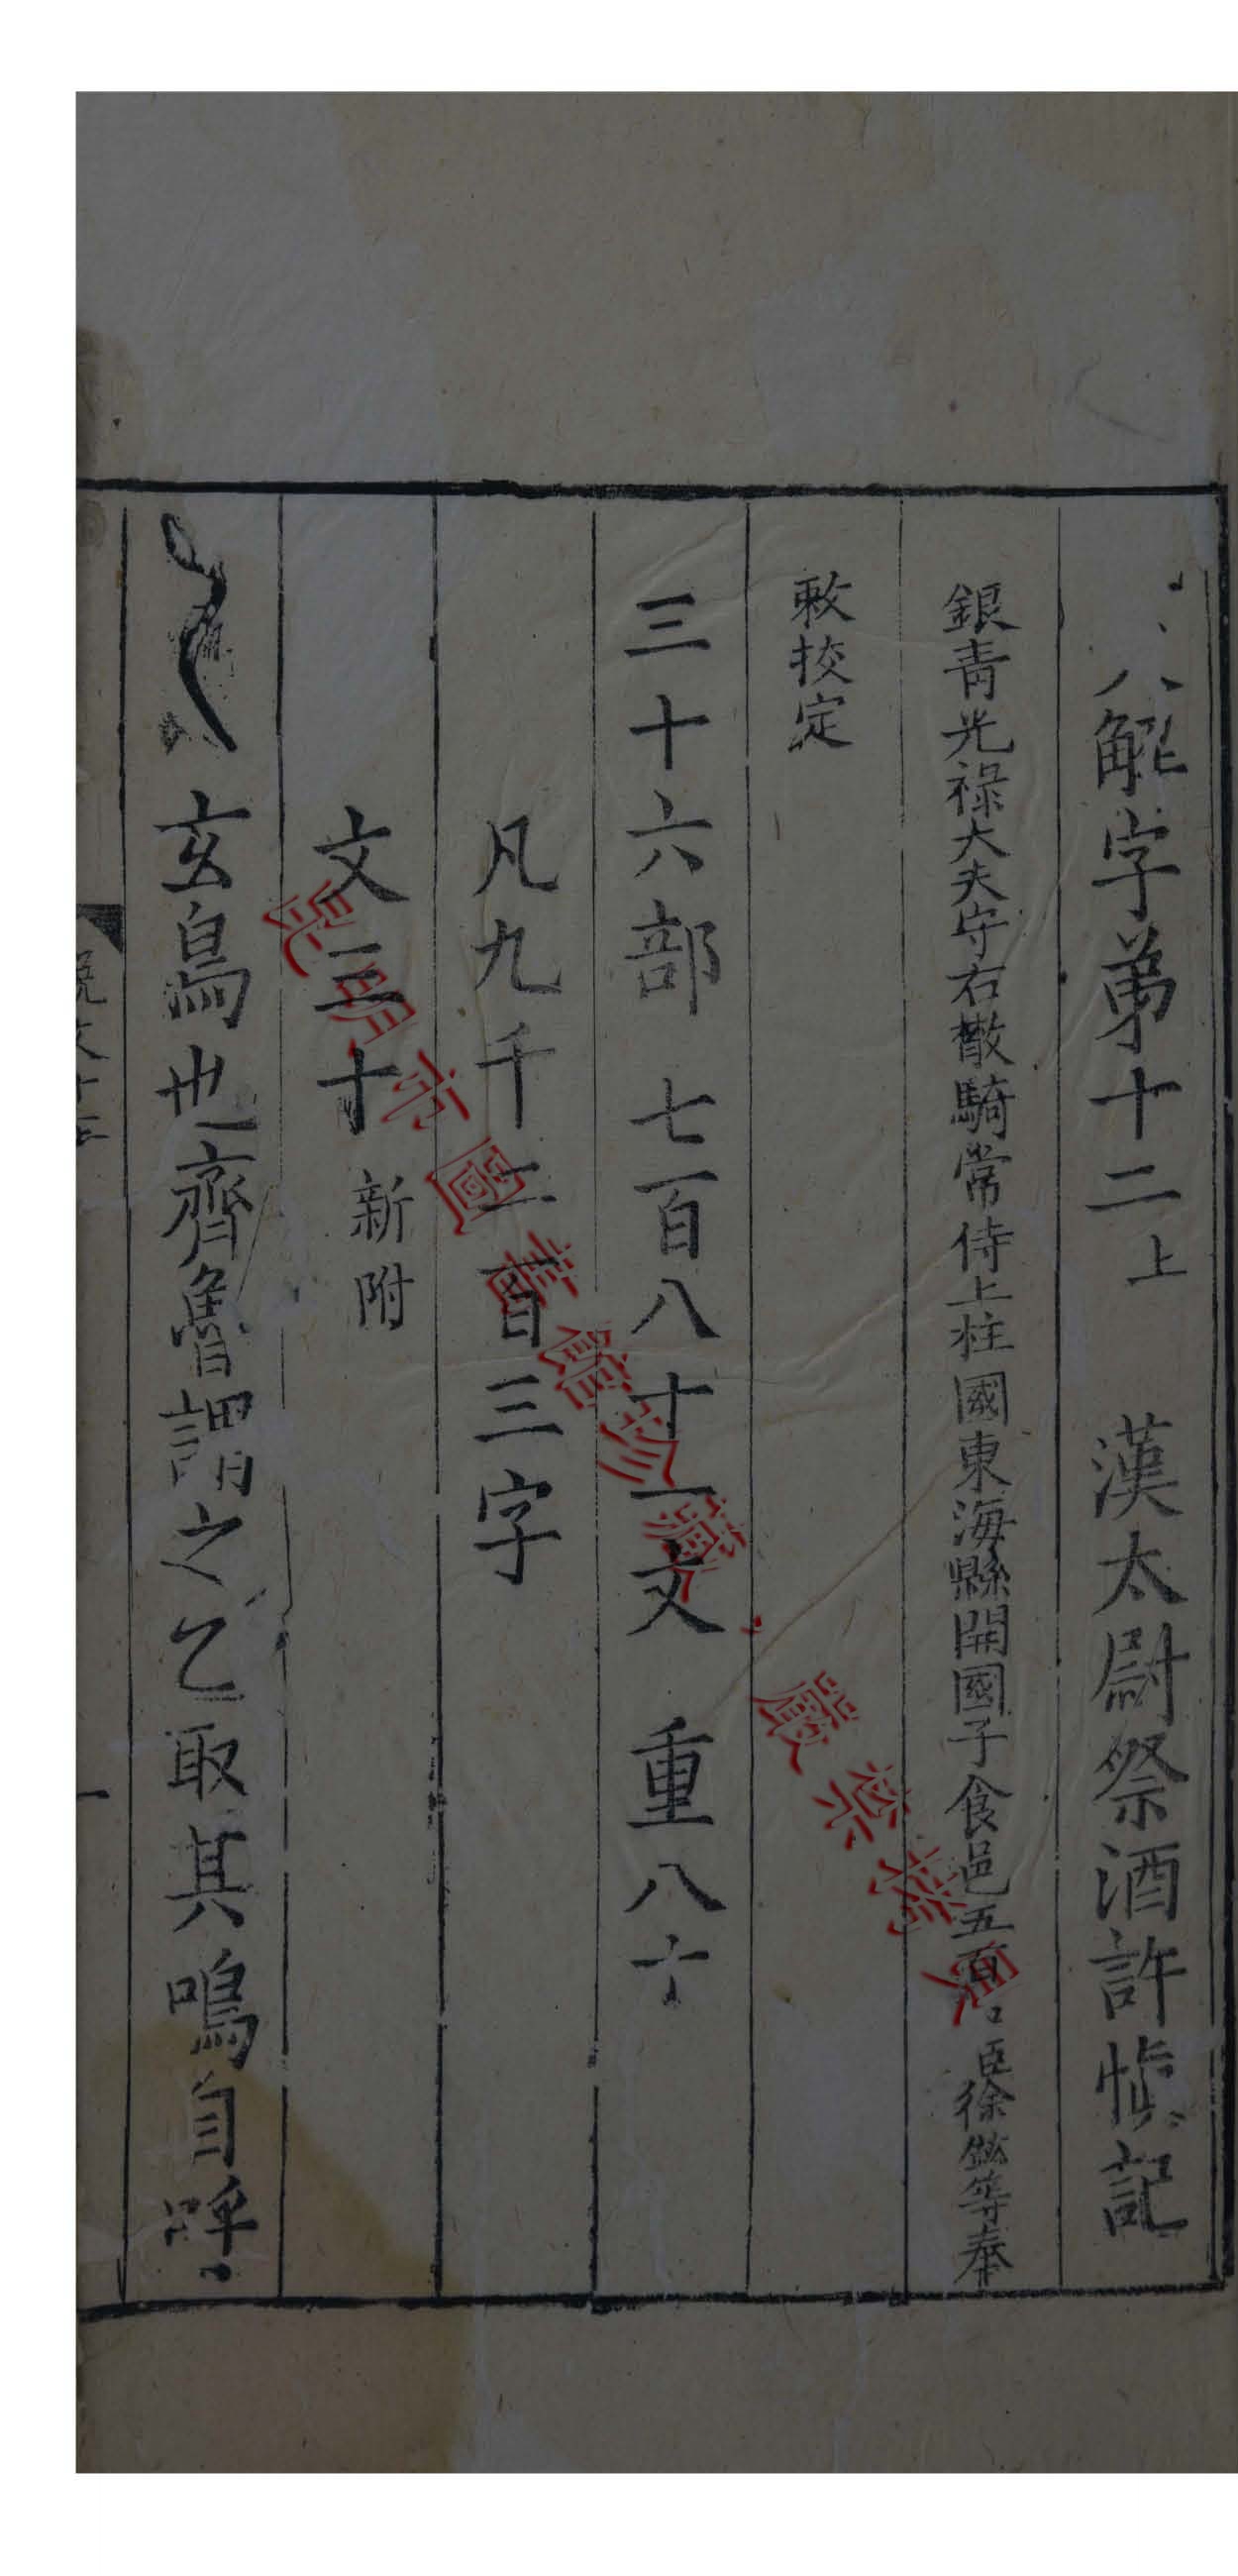 解字弟十二上 漢太尉祭酒許慎記
銀青光祿大夫守右散騎常侍上柱國東海縣開國子食邑五百戶臣徐鉉等奉
敕校定
三十六部 七百八十一文 重八十
凡九千二百三字
文三十新附
玄鳥也齊魯謂之乙取其鳴自呼
說文十二
一
昆明市圖書館珍藏，嚴禁擅用